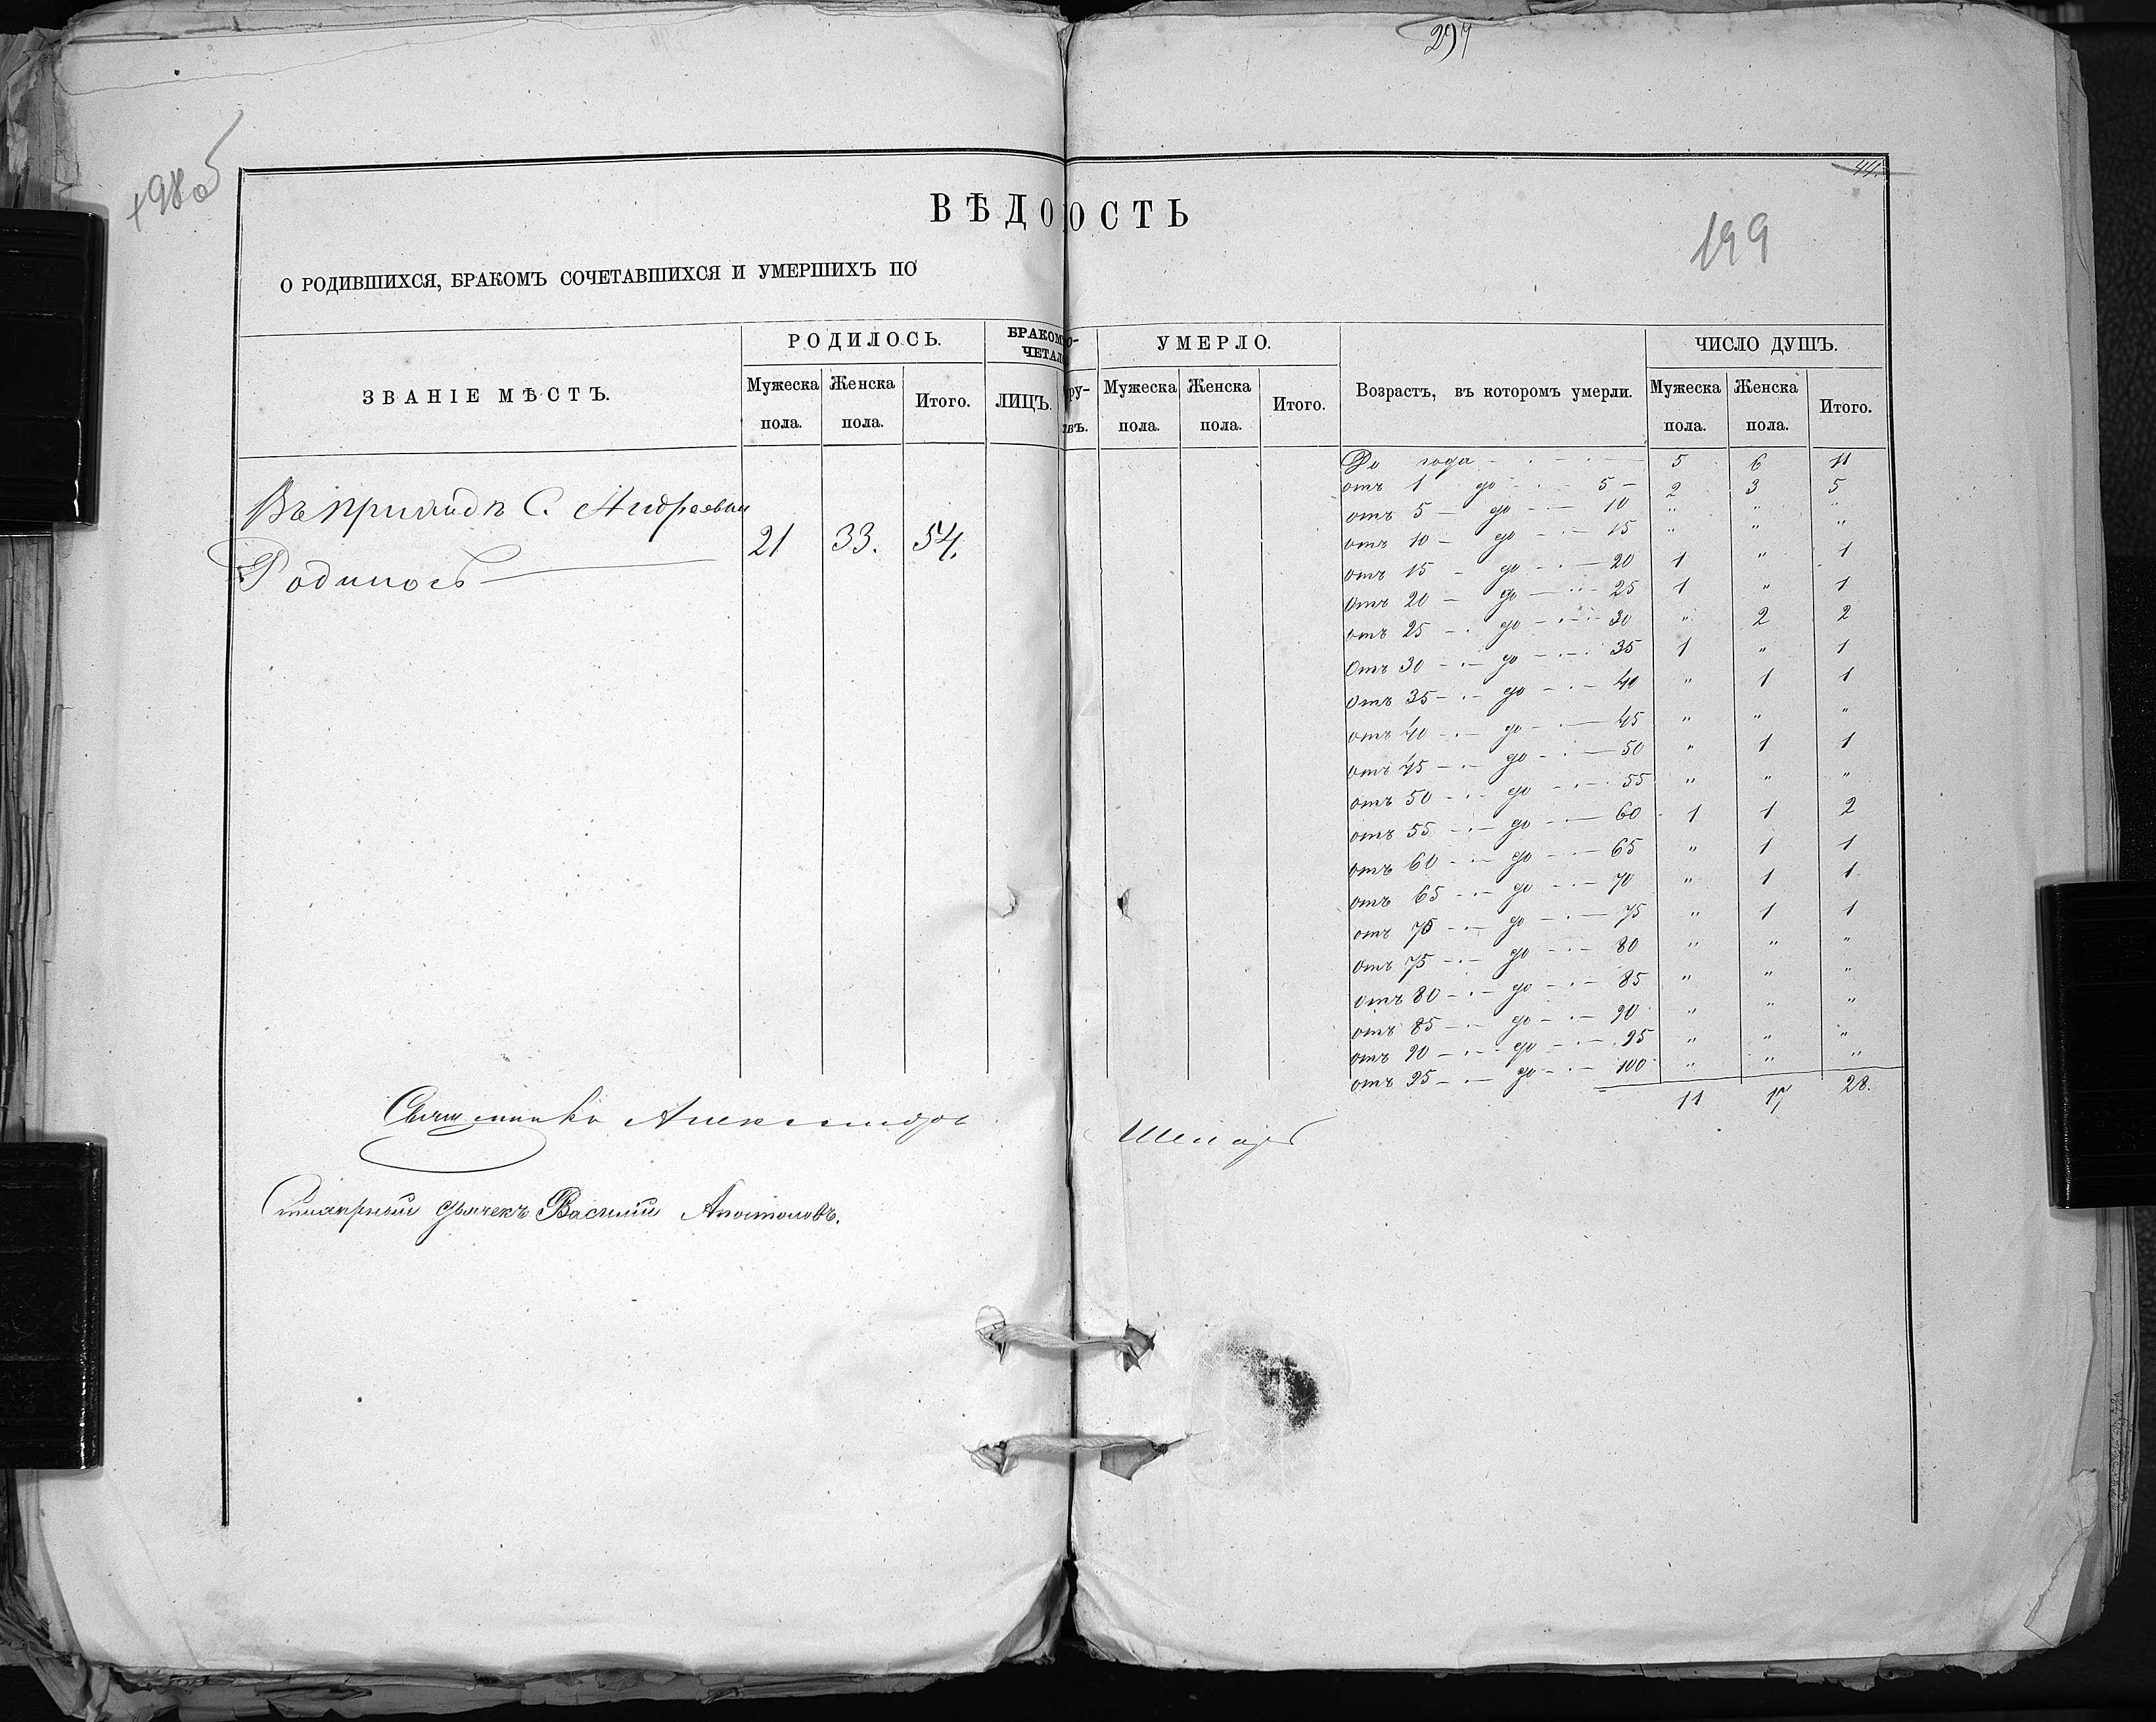 297
198об
44.
199
ВѢДО ОСТЬ
О РОДИВШИХСЯ, БРАКОМЪ СОЧЕТАВШИХСЯ И УМЕРШИХЪ ПО
ЗВАНІЕ МѢСТЪ.
РОДИЛОСЬ.
Мужеска пола.
Женска пола.
Итого.
БРАКОМ О-
ЧЕТАЛ
ЛИЦЪ.
ру-
въ.
УМЕРЛО.
Мужеска пола.
Женска пола.
Итого.
Возрастъ, въ которомъ умерли.
ЧИСЛО ДУШЪ.
Мужеска пола.
Женска пола.
Итого.
Въ приходѣ С. Андреевки
Родилось 21 33. 54.
До года 5 6 11
отъ 1 до 5 2 3 5
отъ 5 до 10 " " "
отъ 10 до 15 " " "
отъ 15 до 20 1 " 1
отъ 20 до 25 1 " 1
отъ 25 до 30 " 2 2
отъ 30 до 35 1 " 1
отъ 35 до 40 " 1 1
отъ 40 до 45 " " "
отъ 45 до 50 " 1 1
отъ 50 до 55 " " "
отъ 55 до 60 1 1 2
отъ 60 до 65 " 1 1
отъ 65 до 70 " 1 1
отъ 70 до 75 " 1 1
отъ 75 до 80 " " "
отъ 80 до 85 " " "
отъ 85 до 90 " " "
отъ 90 до 95 " " "
отъ 95 до 100 " " "
11 17 28.
Священникъ Александръ
дьячекъ Василій Апостоловъ.